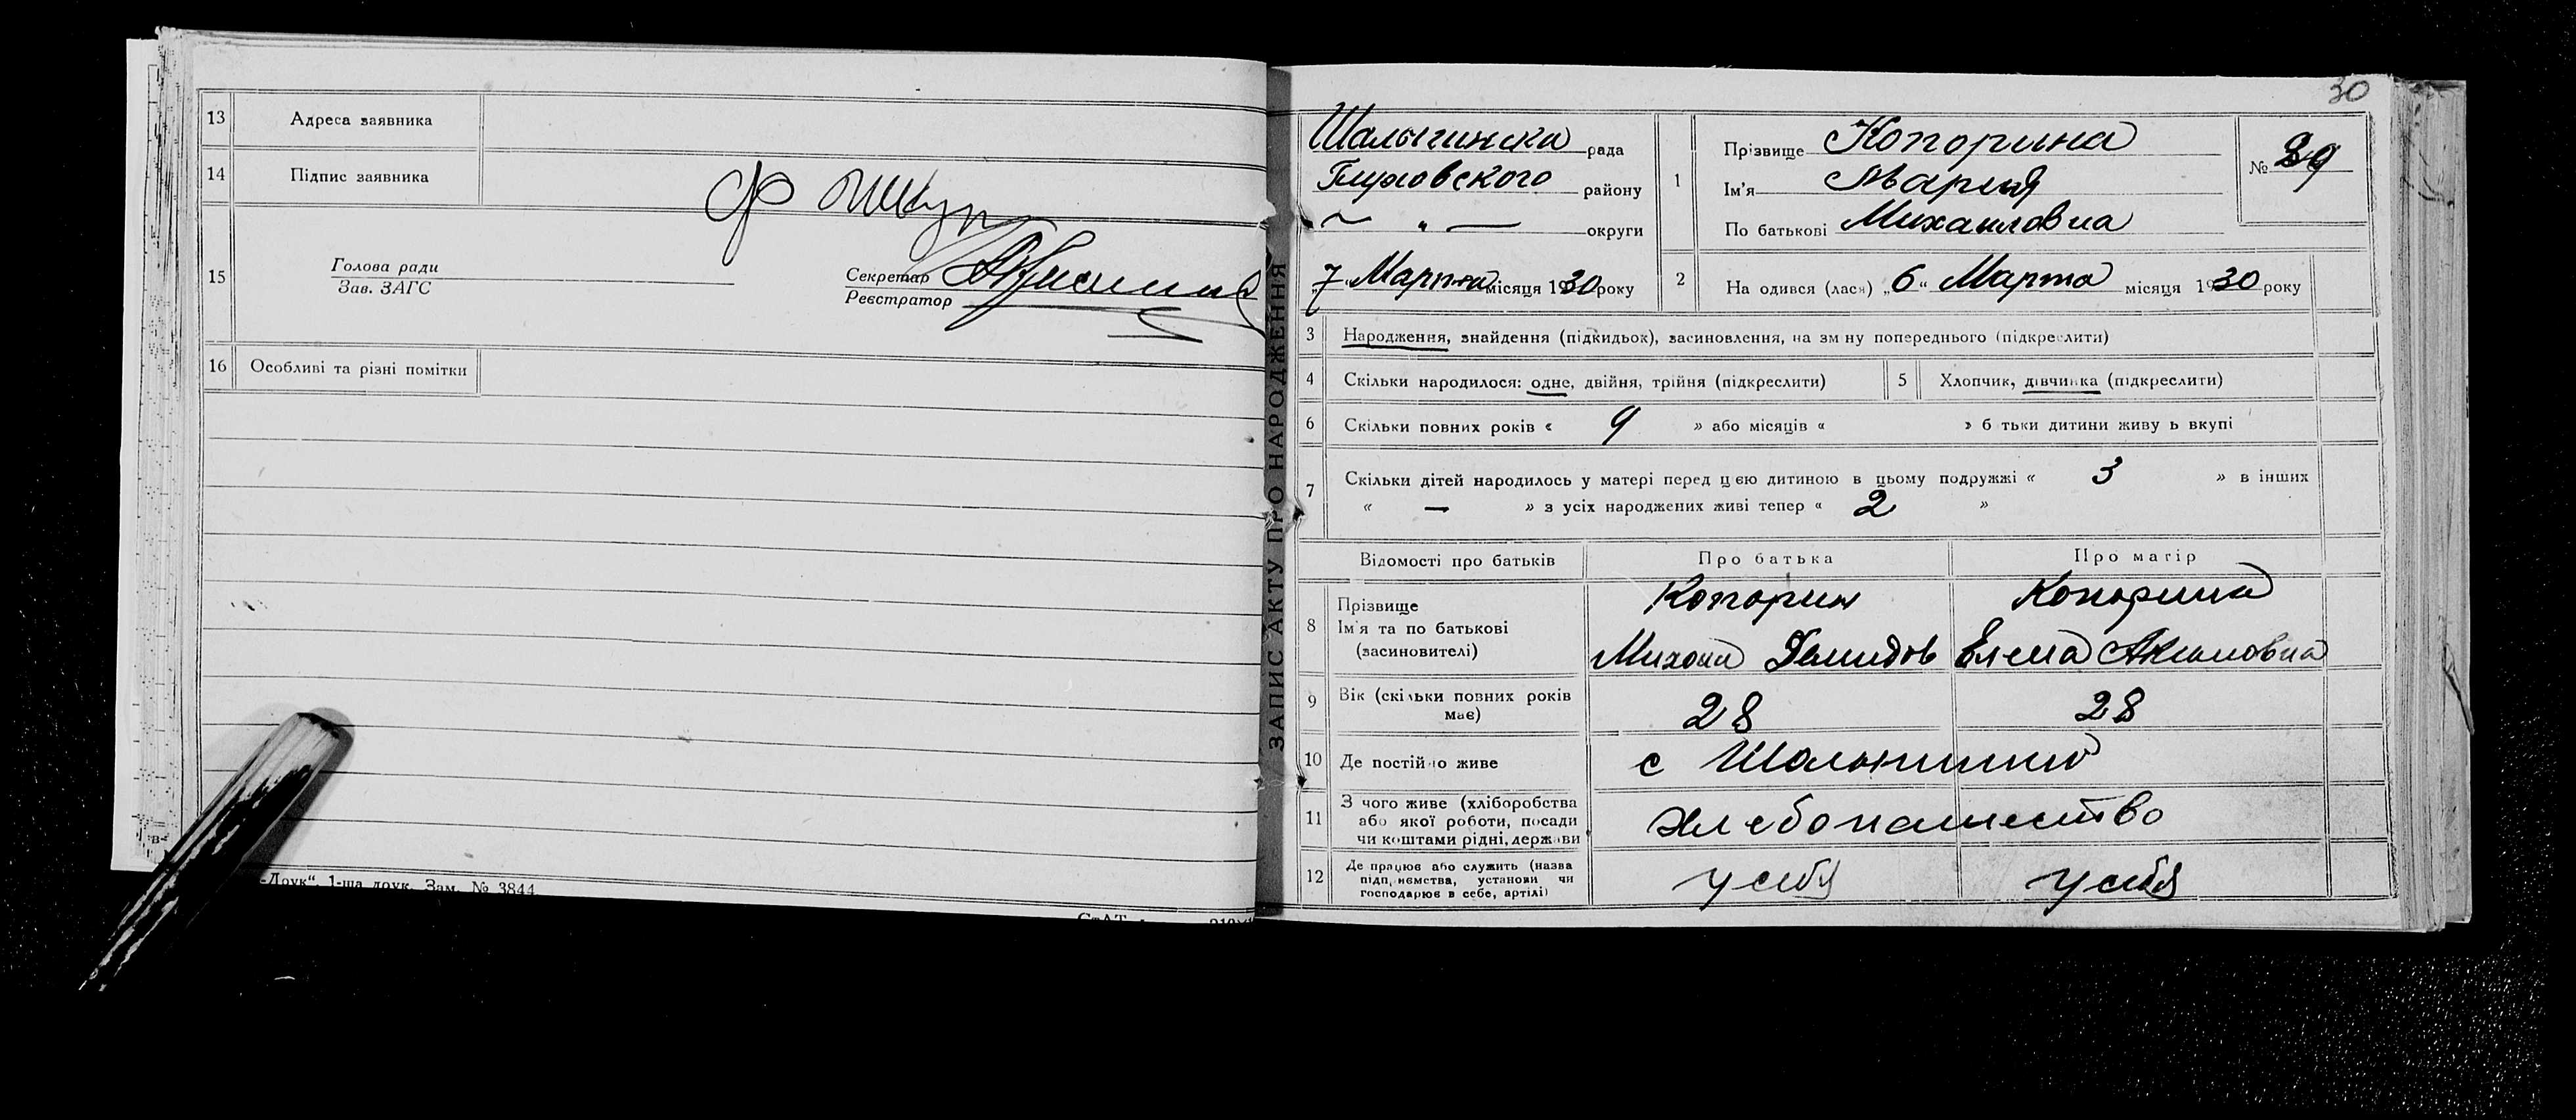 13 Адреса заявника
14 Підпис заявника
15 Голова ради
Зав. ЗАГС
Секретар
Реєстратор
16 Особливі та різні помітки
-Друк", 1-ша друк. Зам. № 3844
ЗАПИС АКТУ ПРО НАРОДЖЕННЯ
30
Шалыгинска рада
Глуховского району
~ „ — округи
„7" Марта місяця 1930 року
1 Прізвище Копорина
Ім'я Мария
По батькові Михаиловна
№ 29
2 На одився (лася) „6" Марта місяця 1930 року
3 Народження, знайдення (підкидьок), засиновлення, на зм ну попереднього (підкреслити)
4 Скільки народилося: одне, двійня, трійня (підкреслити) 5 Хлопчик, дівчинка (підкреслити)
6 Скільки повних років « 9 » або місяців « » б тьки дитини живу ь вкупі
7 Скільки дітей народилось у матері перед цією дитиною в цьому подружжі « 3 » в інших
« — » з усіх народжених живі тепер « 2 »
Відомості про батьків Про батька Про матір
8 Прізвище Копорин Копорина
Ім'я та по батькові
(засиновителі) Михаил Демидов Елена Акимовна
9 Вік (скільки повних років має) 28 28
10 Де постійно живе с Шалыгино
11 З чого живе (хліборобства
або якої роботи, посади
чи коштами рідні, держави хлебопашество
12 Де працює або служить (назва
підприємства, установи чи
господарює в себе, артілі) у себя у себя